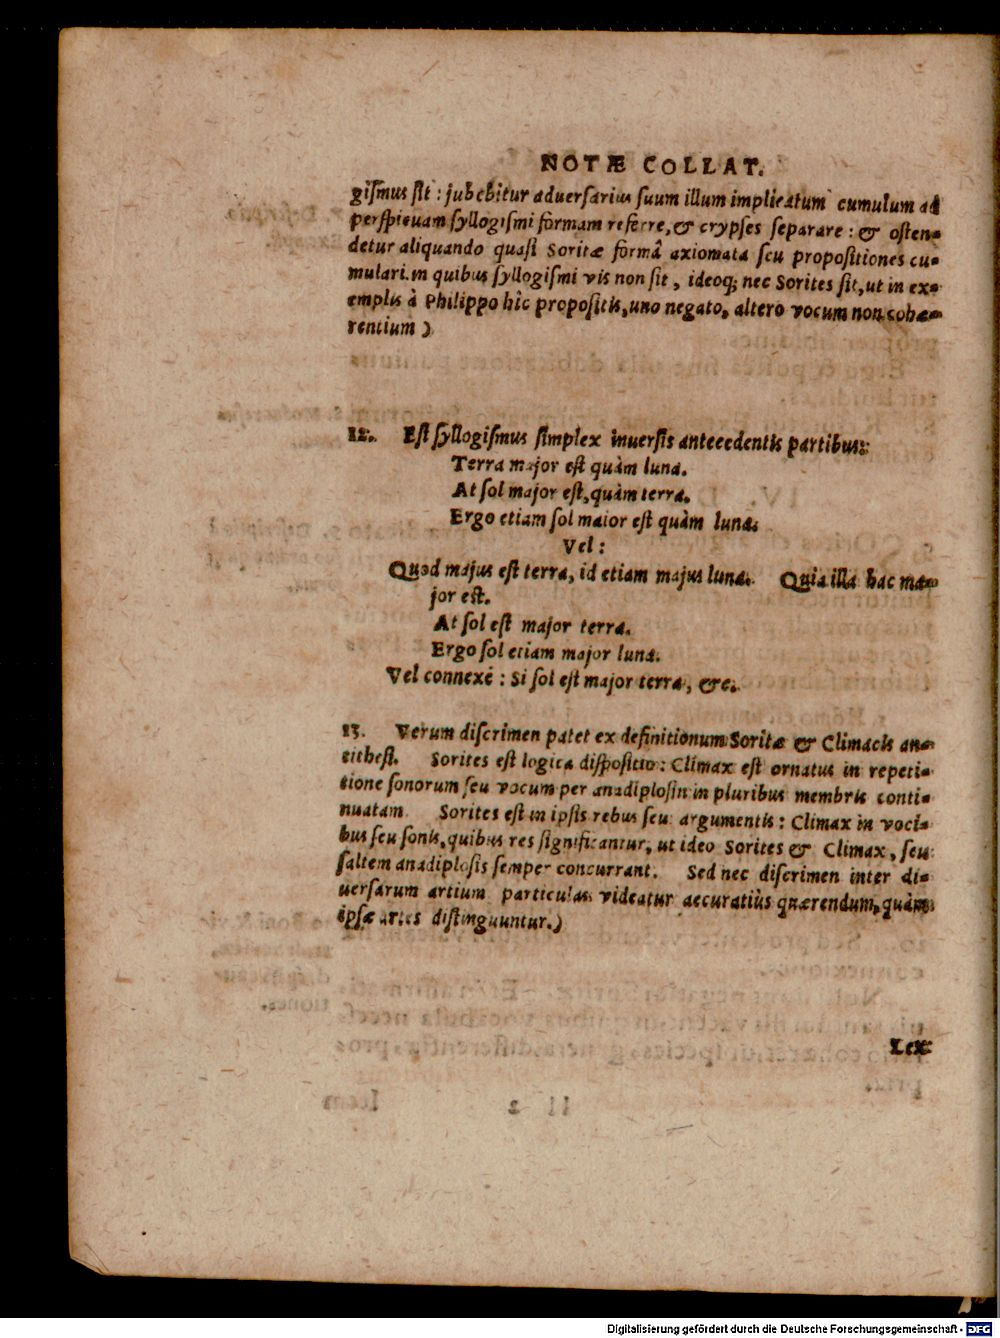 NOTÆ COLLAT.
giſmus ſit : jubebitur aduerſarius ſuum illum implicatum cumulum ad
perſpicuam ſyllogiſmi formam referre, & crypſes ſeparare : & oſten-
detur aliquando quaſi Soritæ formâ axiomata ſeu propoſitiones cu-
mulari, in quibus ſyllogiſmi vis non ſit, ideoq; nec Sorites ſit, ut in ex-
emplis à Philippo hîc propoſitis, uno negato, altero vocum non cohæ-
rentium )
12. Eſt ſyllogiſmus ſimplex inuerſis antecedentis partibus:
Terra major eſt quàm luna.
At ſol major eſt, quàm terra.
Ergo etiam ſol maior eſt quàm luna.
Vel :
Quod majus eſt terra, id etiam majus luna. Quia illa hac ma-
jor eſt.
At ſol eſt major terra.
Ergo ſol etiam major luna.
Vel connexé : Si ſol eſt major terra, &c.
13. Verum diſcrimen patet ex definitionum Soritæ & Climacis an-
titheſi. Sorites eſt logica diſpoſitio : Climax eſt ornatus in repeti-
tione ſonorum ſeu vocum per anadiploſin in pluribus membris conti-
nuatam. Sorites eſt in ipſis rebus ſeu argumentis : Climax in voci-
bus ſeu ſonis, quibus res ſignificantur, ut ideo Sorites & Climax, ſeu
ſaltem anadiploſis ſemper concurrant. Sed nec diſcrimen inter di-
uerſarum artium particulas videatur accuratiùs quærendum, quàm
ipſæ artes diſtinguuntur.)
Lex
Digitalisierung gefördert durch die Deutsche Forschungsgemeinschaft - DFG